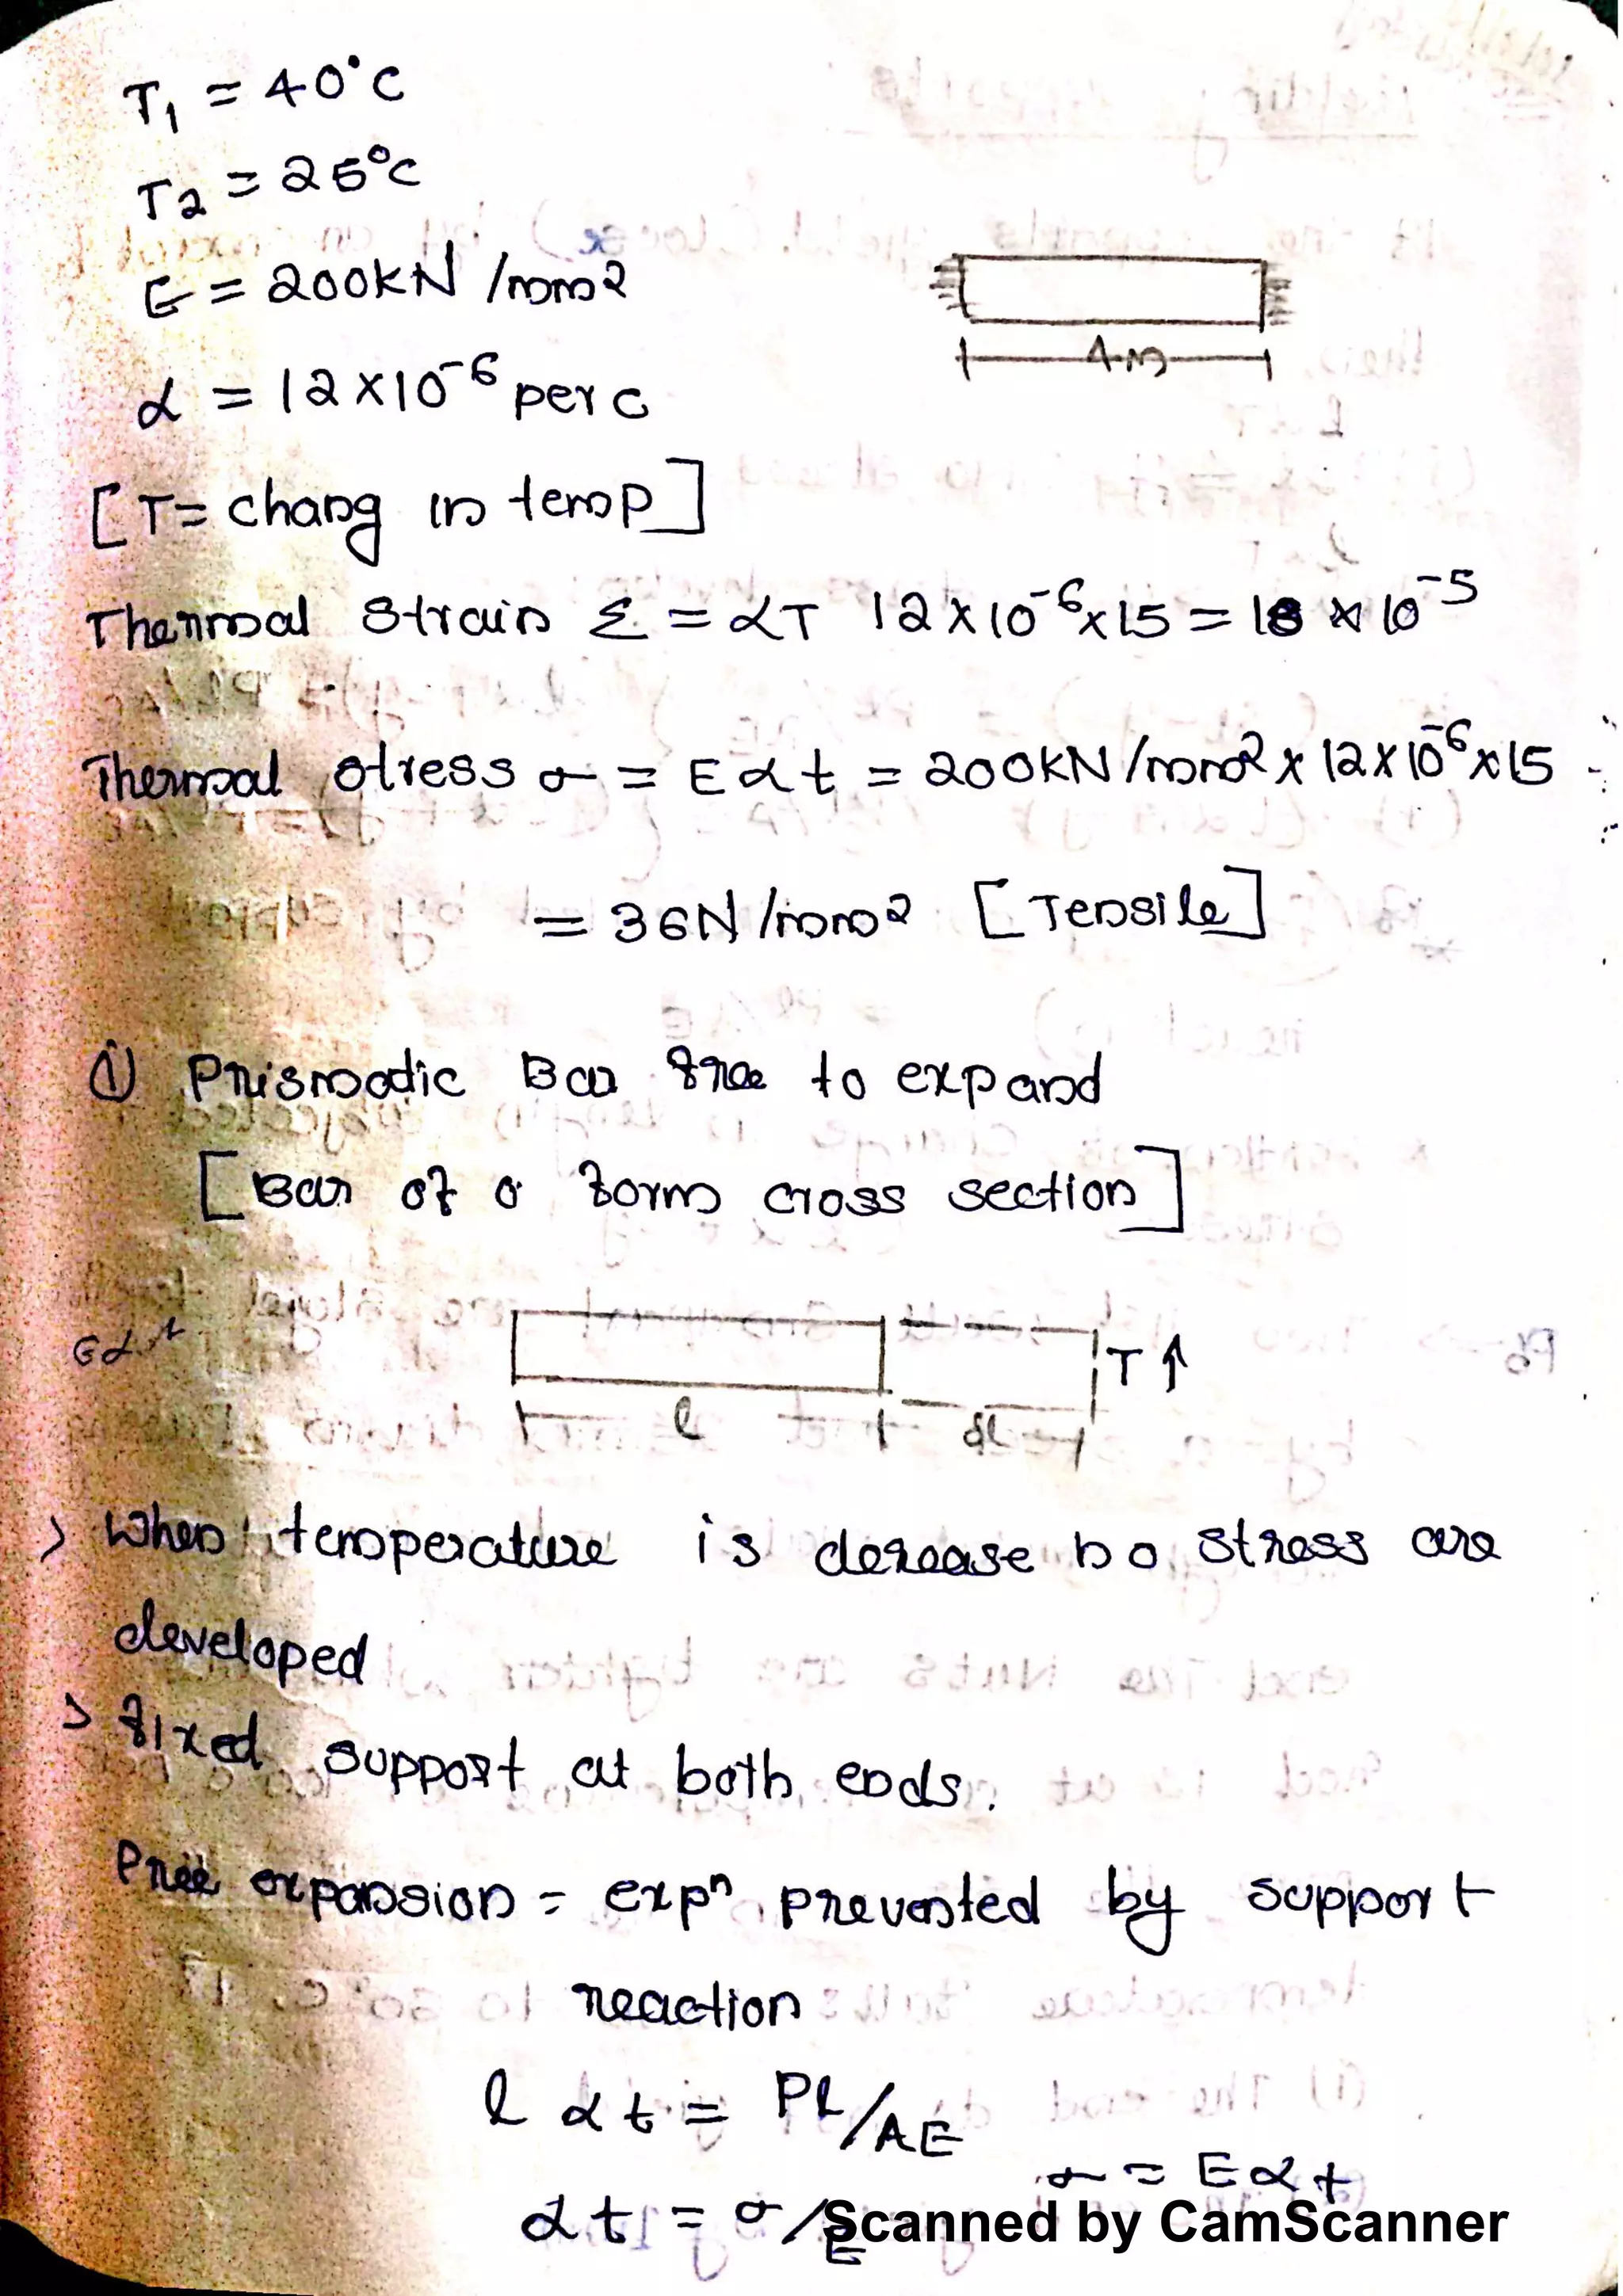 T₁ = 40°C
T2 = 25°C
E = 200KN /mm2
4m
α = 12×10⁻⁶ per c
[T= chang in temp]
Thermal strain Σ = αT 12×10⁻⁶×15 = 18 × 10⁻⁵
Thermal stress σ = Eαt = 200KN/mm2 × 12×10⁻⁶×15
= 36N/mm2 [Tensile]
① Prismadic Bar free to expand
[Bar of o form cross section]
Eαt
T ↑
l δl
> When temperature is derease no stress are
developed
> fixed support at both ends.
Free expansion = expⁿ prevented by support
reaction
l α t = Pl/AE
σ = Eαt
αt = σ/E
Scanned by CamScanner